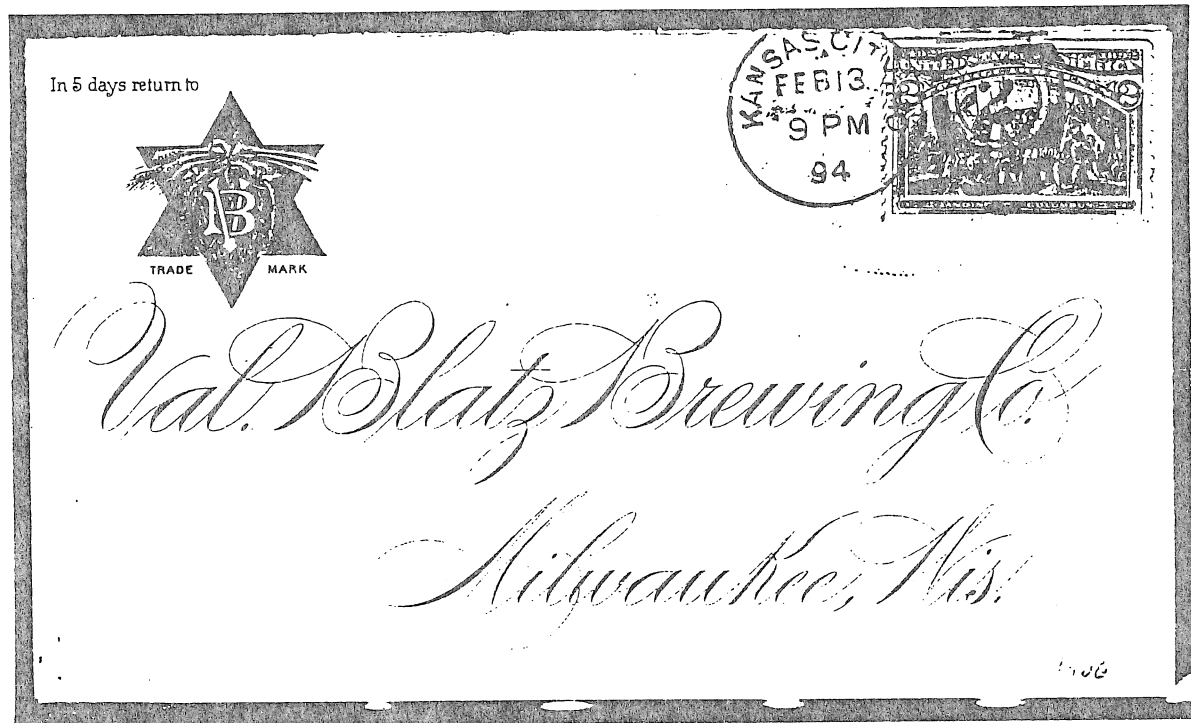 In 5 days return to
VB
TRADE MARK
KANSAS CITY
FEB 13
9 PM
94
UNITED STATES OF AMERICA
2
2
Val. Blatz Brewing Co.
Milwaukee, Wis.